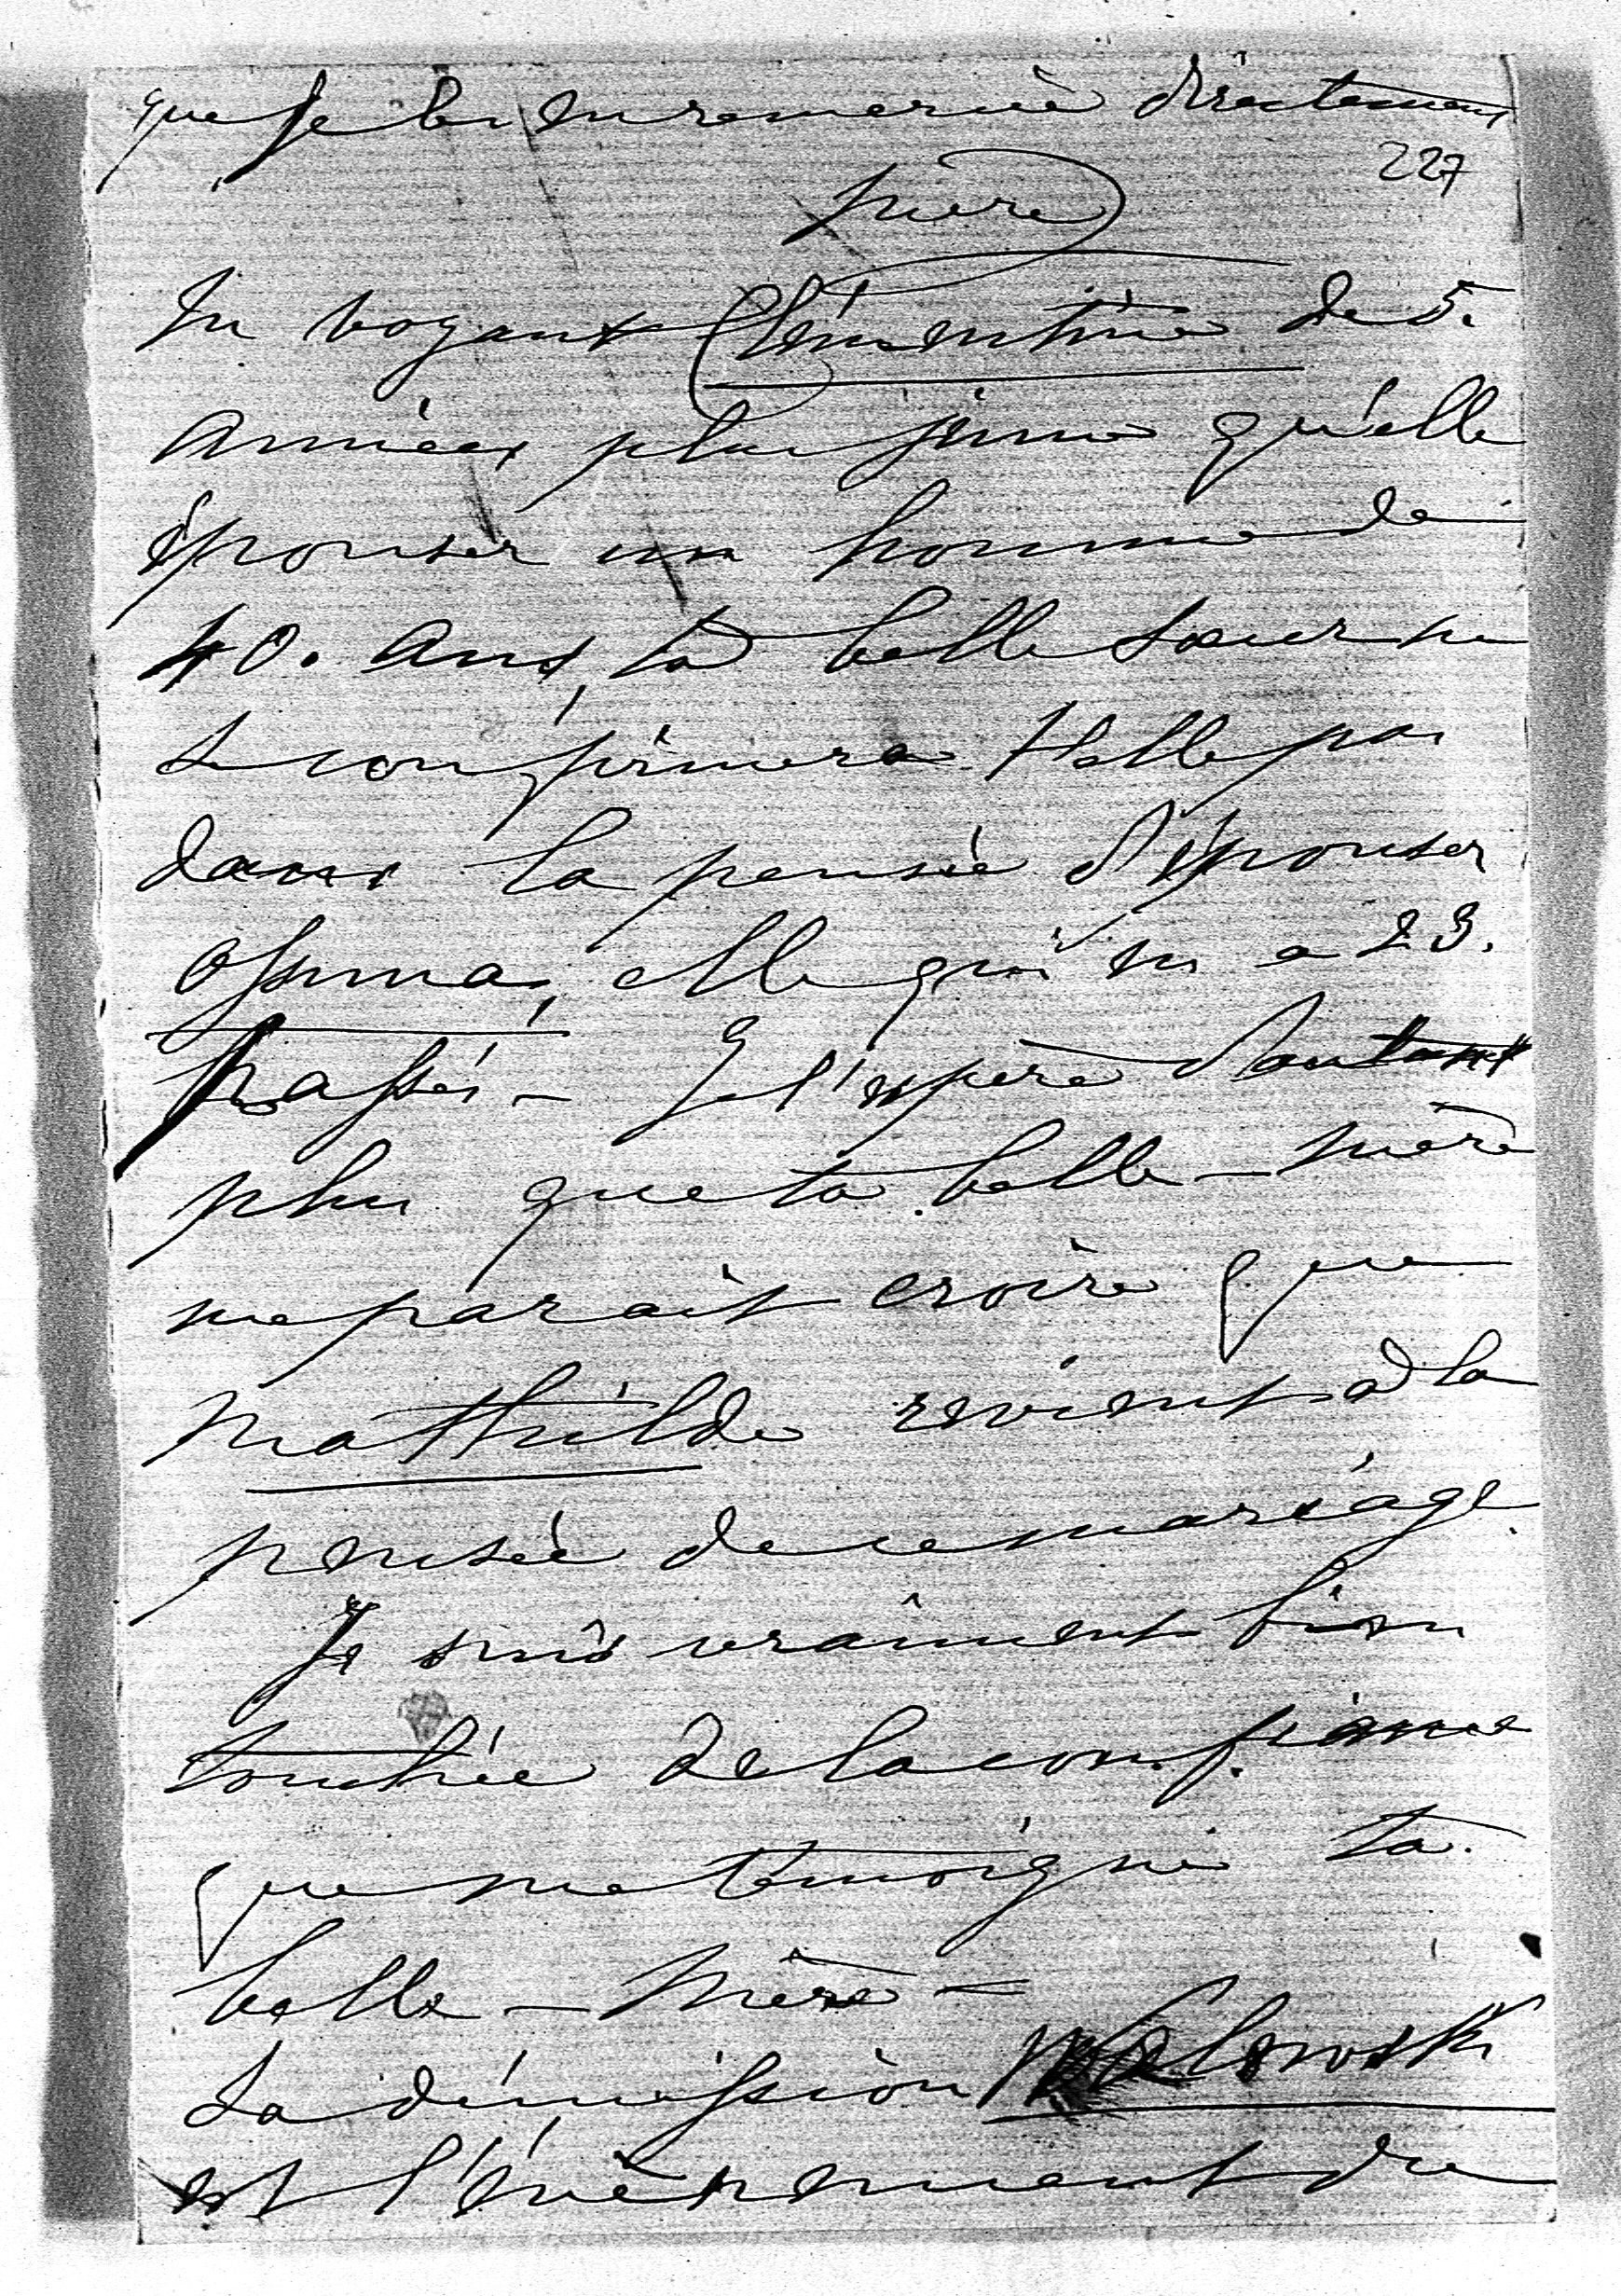 que je l'en remercie directement
227
mère
En voyant Clémentine de 5.
années plus jeune qu'elle
épouser un homme de
40. ans, ta belle sœur ne
se confirmera t'elle pas
dans la pensée d'épouser
Osuna, elle qui en a 23.
passés - Je l'espère d'autant
plus que ta belle-mère
me parait croire que
Mathilde revient à la
pensée de ce mariage.
Je suis vraiment bien
touchée de la confiance
que me témoigne ta
belle-mère -
La démission Walewski
est l'évènement du